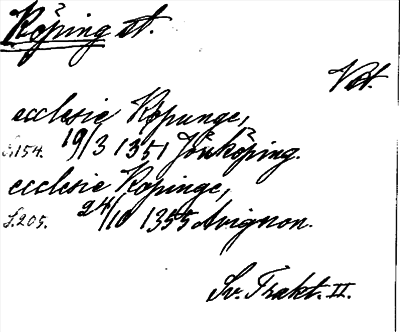 Köping st.
Vstm.
ecclesie Köpunge,
s. 154. 19/3 1351 Jönköping.
ecclesie Kopinge,
s. 205. 24/10 1355 Avignon.
Sv. Trakt. II.